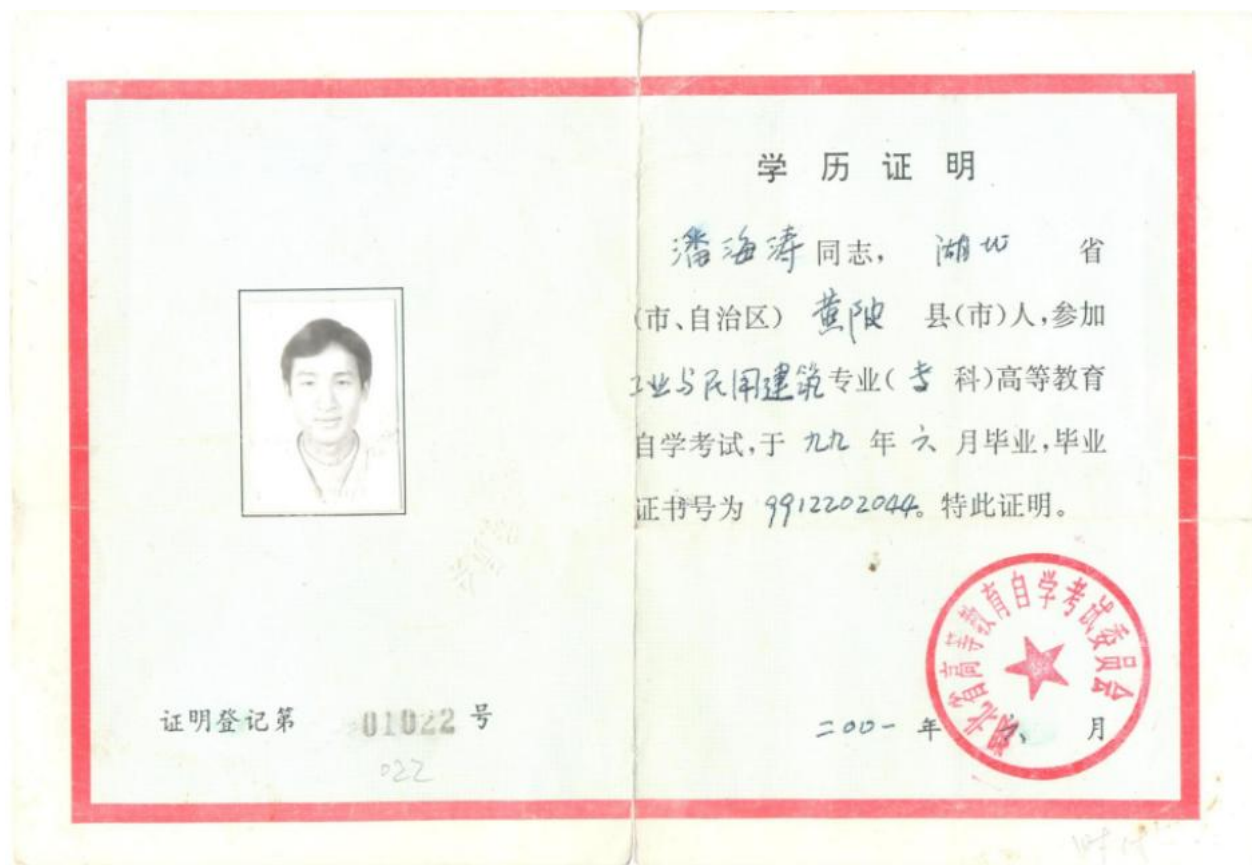 证明登记第 01022 号
022
学历证明
潘海涛同志, 湖北 省
(市、自治区) 黄陂 县(市)人,参加
工业与民用建筑专业(专科)高等教育
自学考试,于 九九 年 六 月毕业,毕业
证书号为 9912202044。特此证明。
湖北省高等教育自学考试委员会
二00一 年 六 月